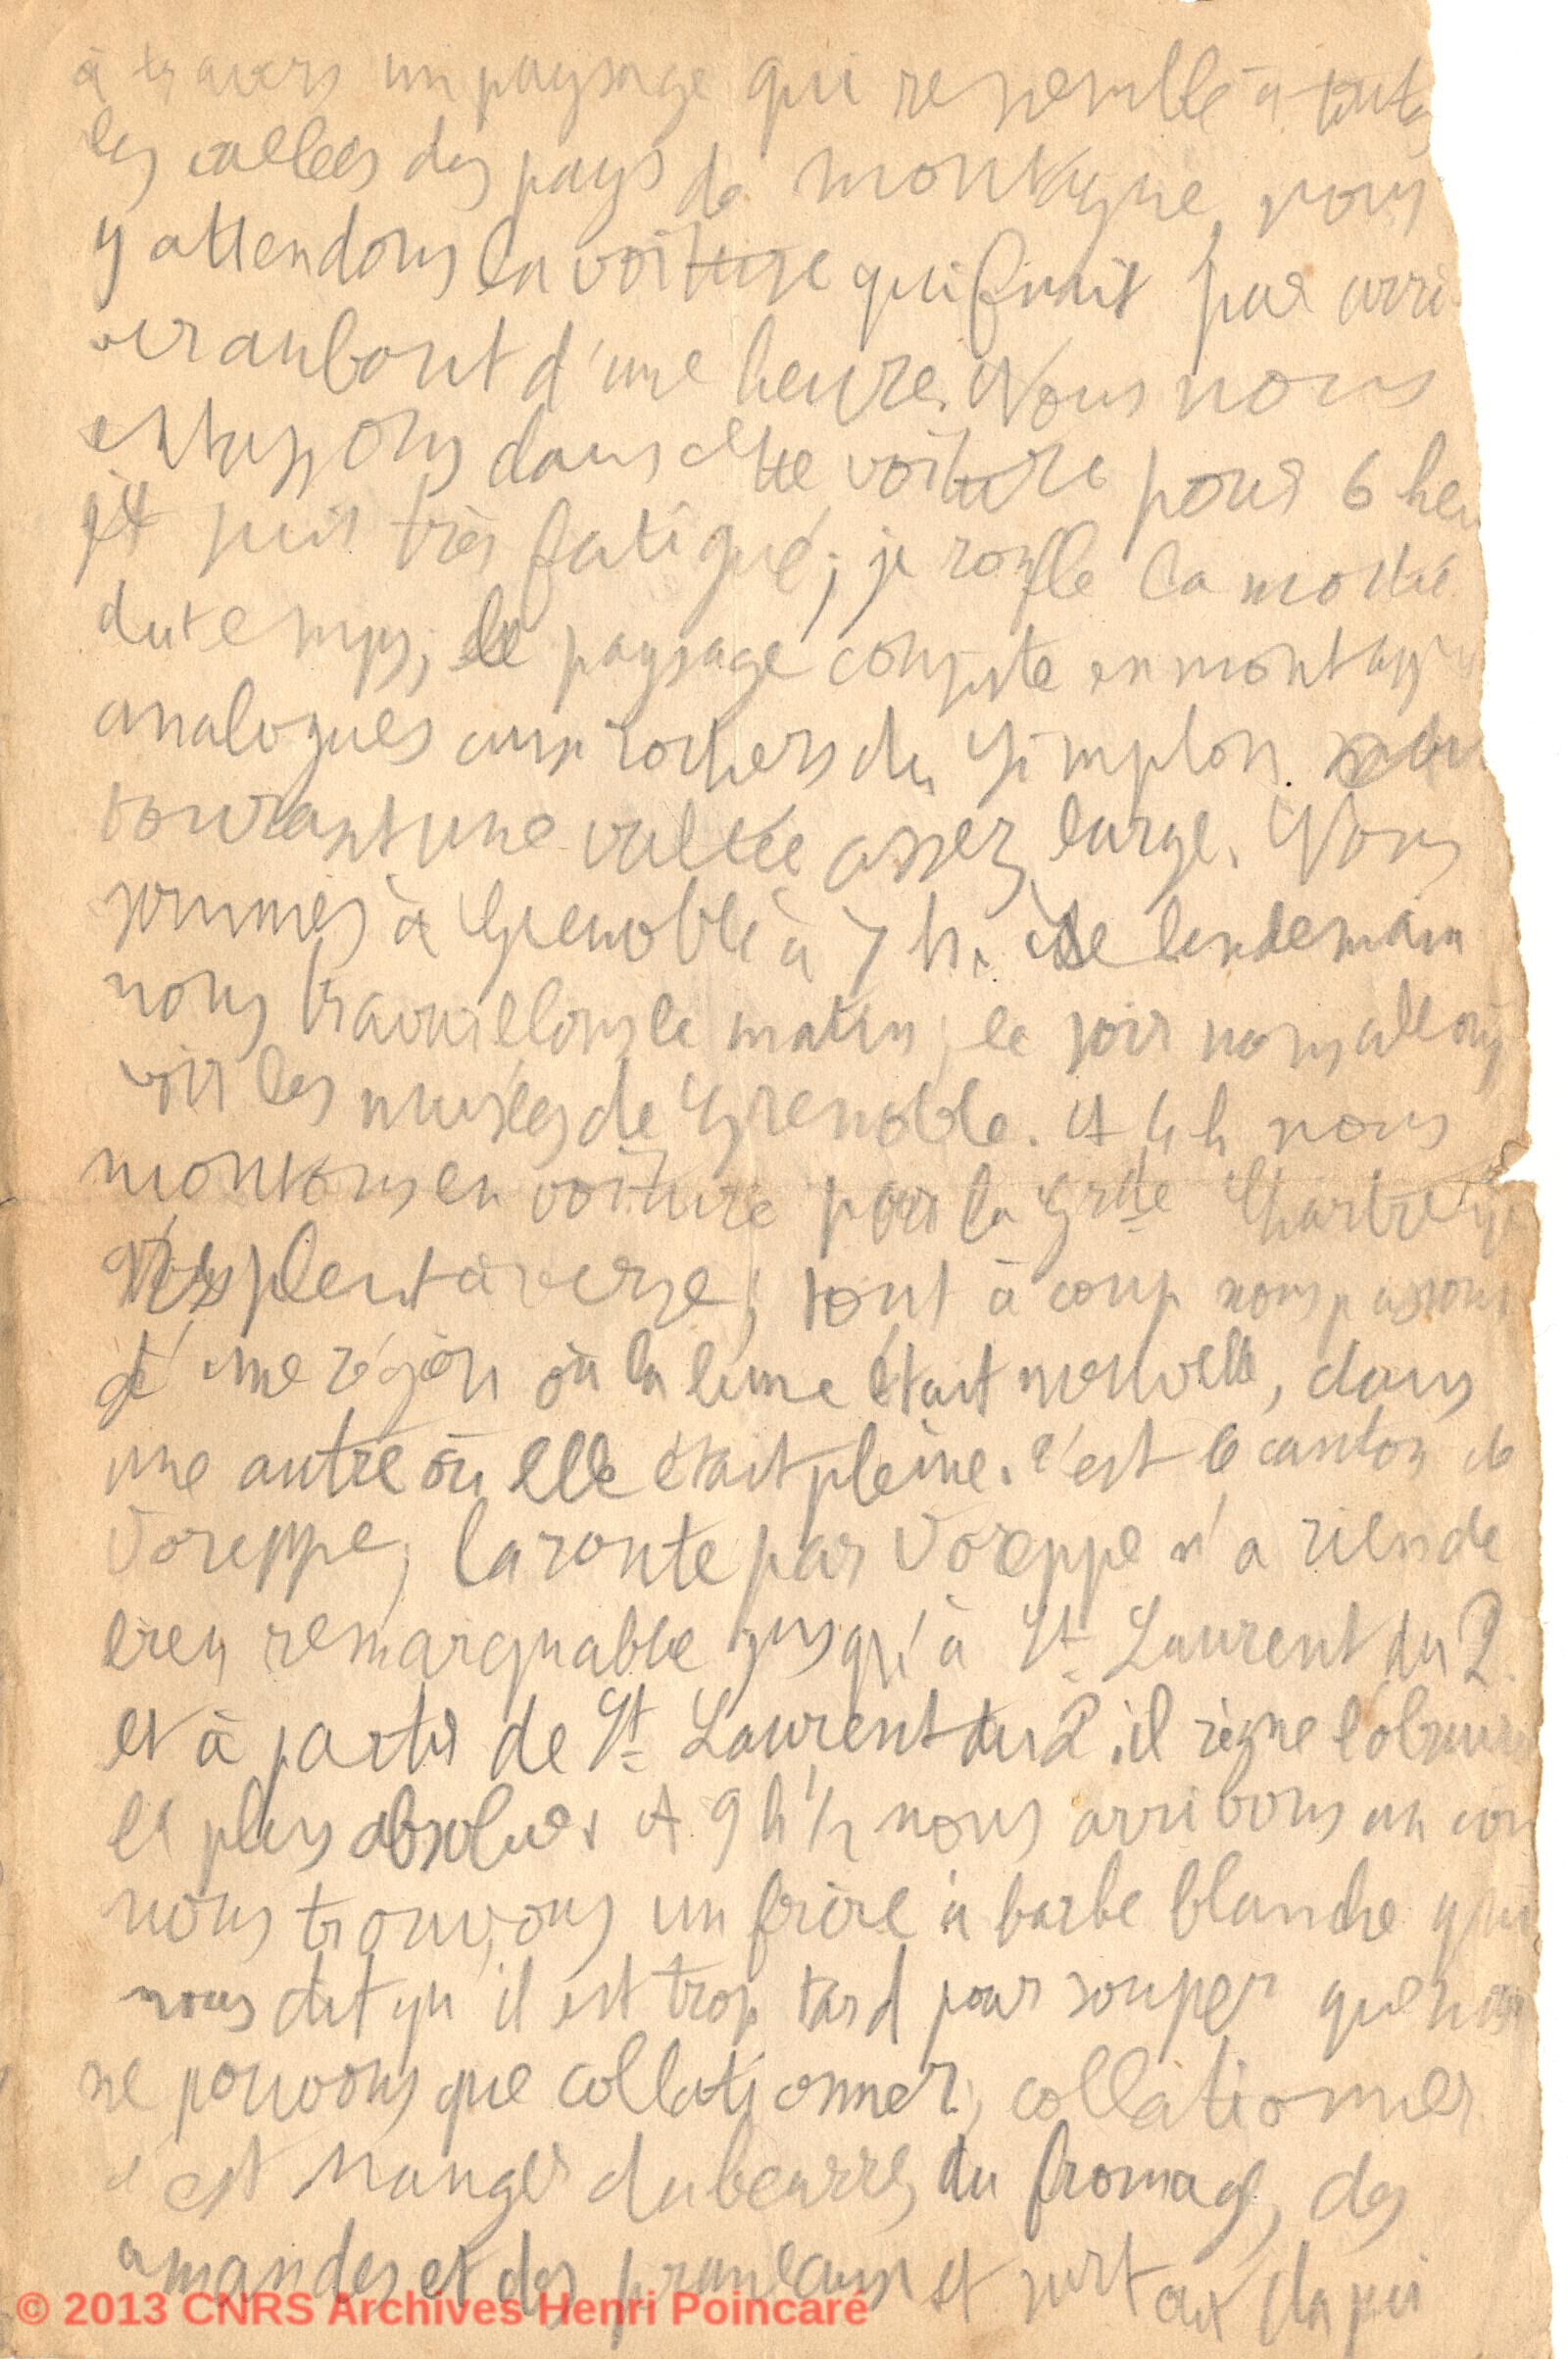 à travers un paysage qui ressemble à toutes
les vallées des pays de montagne, nous
y attendons la voiture qui finait par arri
ver au bout d'une heure. Nous nous
entassons dans cette voiture pour 6 heu
suis très fatigué; je ronfle la moitié
du temps; le paysage consiste en montagn
analogues aux rochers du Simplon.
tourant une vallée assez large. Nous
sommes à Grenoble à 7 h. Le lendemain
nous travaillons le matin; le soir nous allons
voir les musées de Grenoble. A 4 h nous
montons en voiture pour la Grde Chartreuse
pleut à verse; tout à coup nous passons
d'une région où la lune était nouvelle, dans
une autre où elle était pleine. C'est le canton de
Voreppe; la route par Voreppe n'a rien de
bien remarquable jusqu'à St Laurent du P.
et à partir de St Laurent du P. il règne l'obscuri
la plus absolue. A 9 h 1/2 nous arrivons au cou
nous trouvons un frère à barbe blanche qui
nous dit qu'il est trop tard pour souper que nous
ne pouvons que collationner; collationner
c'est manger du beurre, du fromage, des
amandes et des pruneaux et surtout du
© 2013 CNRS Archives Henri Poincaré